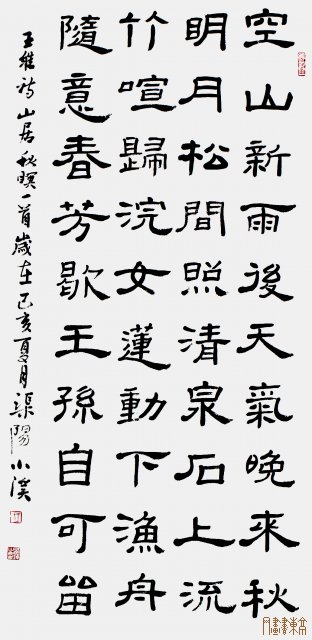 空山新雨後天氣晚來秋
明月松間照清泉石上流
竹喧歸浣女蓮動下漁舟
隨意春芳歇王孫自可留
王維詩山居秋暝一首歲在己亥夏月渠陽小溪